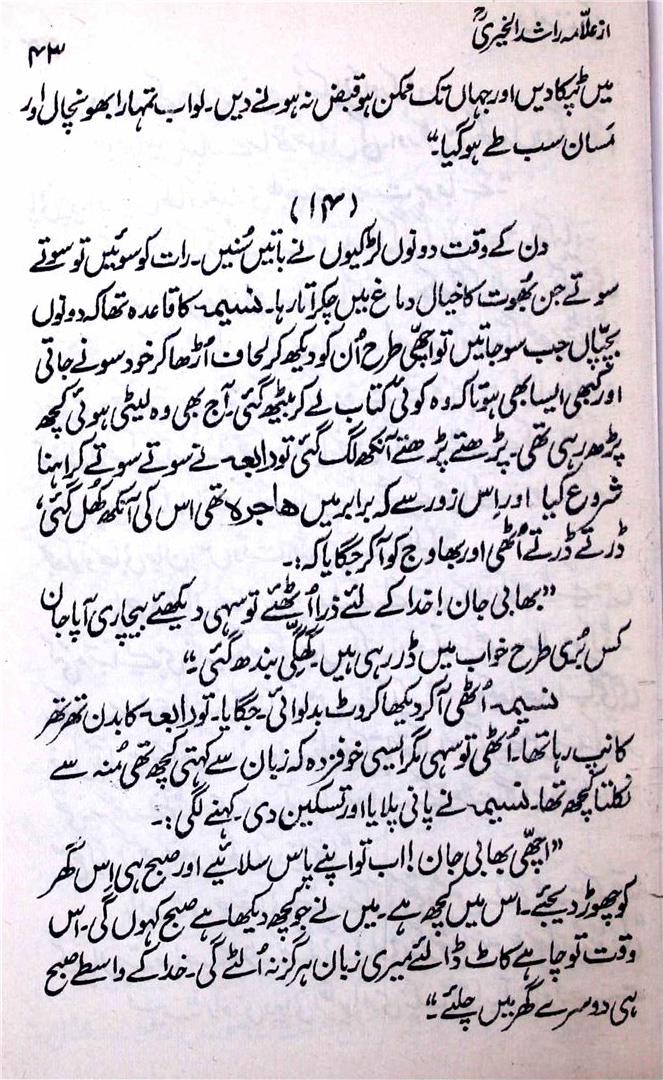 از علامہ راشد الخیریؒ
۴۳
میں ٹپکا دیں اور جہاں تک ممکن ہو قبض نہ ہونے دیں۔ لو اب تمہارا بھونچال اور
مَسان سب طے ہو گیا۔"
(۱۴)
دن کے وقت دونوں لڑکیوں نے باتیں سُنیں۔ رات کو سوئیں تو سوتے
سوتے جن بُھوت کا خیال دماغ میں چکراتا رہا۔ نسیمہ کا قاعدہ تھا کہ دونوں
بچیّاں جب سو جاتیں تو اچھّی طرح اُن کو دیکھ کر لحاف اُڑھا کر خود سونے جاتی
اور کبھی ایسا بھی ہوتا کہ وہ کوئی کتاب لے کر بیٹھ گئی۔ آج بھی وہ لیٹی ہوئی کچھ
پڑھ رہی تھی۔ پڑھتے پڑھتے آنکھ لگ گئی تو رابعہ نے سوتے سوتے کراہنا
شروع کیا اور اِس زور سے کہ برابر میں ھاجرہ تھی اس کی آنکھ کُھل گئی،
ڈرتے ڈرتے اُٹھی اور بھاوج کو آ کر جگایا کہ:۔
"بھابی جان! خدا کے لئے ذرا اُٹھئے تو سہی دیکھئے بیچاری آپا جان
کس بُری طرح خواب میں ڈر رہی ہیں گِھگّی بندھ گئی۔"
نسیمہ اُٹھی آ کر دیکھا کروٹ بدلوائی۔ جگایا۔ تو رابعہ کا بدن تھر تھر
کانپ رہا تھا۔ اُٹھی تو سہی مگر ایسی خوفزدہ کہ زبان سے کہتی کچھ تھی مُنہ سے
نکلتا کچھ تھا۔ نسیمہ نے پانی پلایا اور تسکین دی۔ کہنے لگی:۔
"اچھّی بھابی جان! اب تو اپنے پاس سلائیے اور صبح ہی اِس گھر
کو چھوڑ دیجئے۔ اس میں کچھ ہے۔ میں نے جو کچھ دیکھا ہے صبح کہوں گی۔ اس
وقت تو چاہے کاٹ ڈالئے میری زبان ہرگز نہ اُلٹے گی۔ خدا کے واسطے صبح
ہی دوسرے گھر میں چلئے۔"